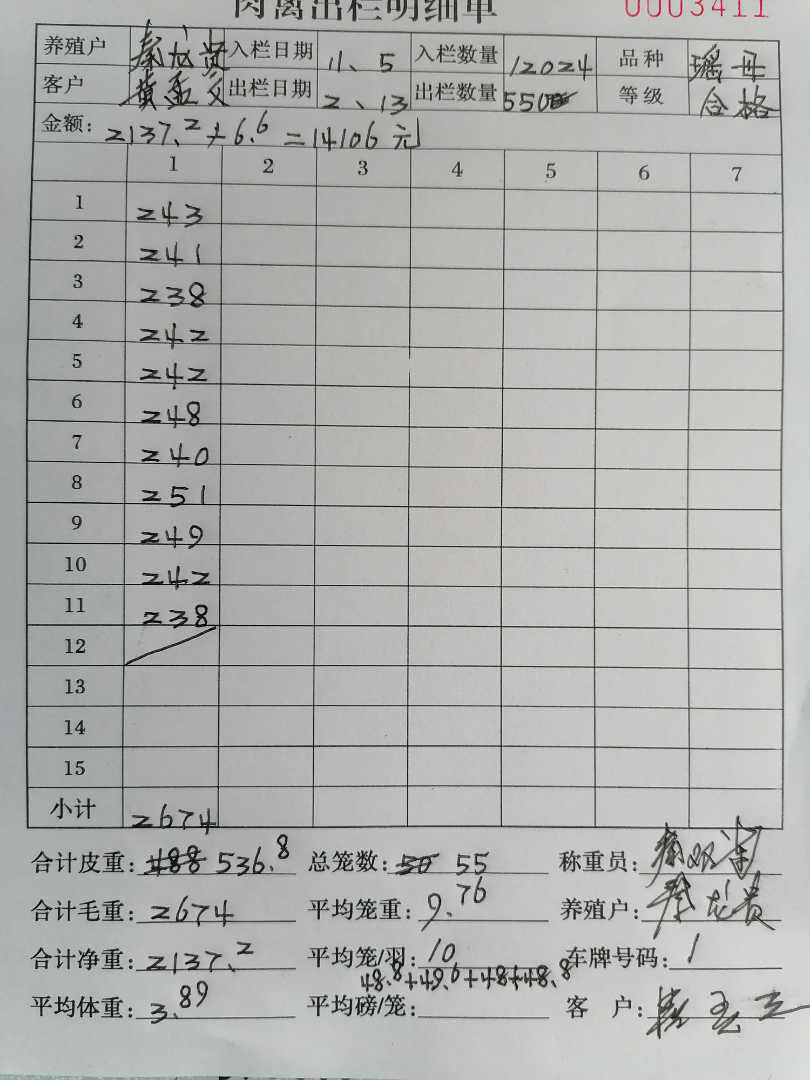 肉禽出栏明细单 0003411
养殖户 秦龙贵 入栏日期 11、5 入栏数量 12024 品种 瑶丹
客户 黄孟 出栏日期 2、13 出栏数量 550 等级 合格
金额: 2137.2 × 6.6 = 14106 元
1 2 3 4 5 6 7
1 243
2 241
3 238
4 242
5 242
6 248
7 240
8 251
9 249
10 242
11 238
12
13
14
15
小计 2674
合计皮重: 488 536.8 总笼数: 50 55 称重员:
合计毛重: 2674 平均笼重: 9.76 养殖户: 秦龙贵
合计净重: 2137.2 平均笼/羽: 10 车牌号码: 1
48.8+49.6+48+48.8
平均体重: 3.89 平均磅/笼: 客 户: